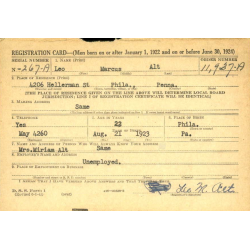 REGISTRATION CARD—(Men born on or after January 1, 1922 and on or before June 30, 1924)
SERIAL NUMBER 1. NAME (Print) ORDER NUMBER
N-267-A Leo Marcus Alt 11,927-A
2. PLACE OF RESIDENCE (Print)
4206 Hellerman St Phila. Penna.
[THE PLACE OF RESIDENCE GIVEN ON THE LINE ABOVE WILL DETERMINE LOCAL BOARD
JURISDICTION; LINE 2 OF REGISTRATION CERTIFICATE WILL BE IDENTICAL]
3. MAILING ADDRESS
Same
4. TELEPHONE 5. AGE IN YEARS 6. PLACE OF BIRTH
Yes 22 Phila.
DATE OF BIRTH
May 4260 Aug. 21 1923 Pa.
7. NAME AND ADDRESS OF PERSON WHO WILL ALWAYS KNOW YOUR ADDRESS
Mrs.Miriam Alt Same
8. EMPLOYER'S NAME AND ADDRESS
Unemployed.
9. PLACE OF EMPLOYMENT OR BUSINESS
I AFFIRM THAT I HAVE VERIFIED ABOVE ANSWERS AND THAT THEY ARE TRUE.
D. S. S. Form 1
Leo M. Alt